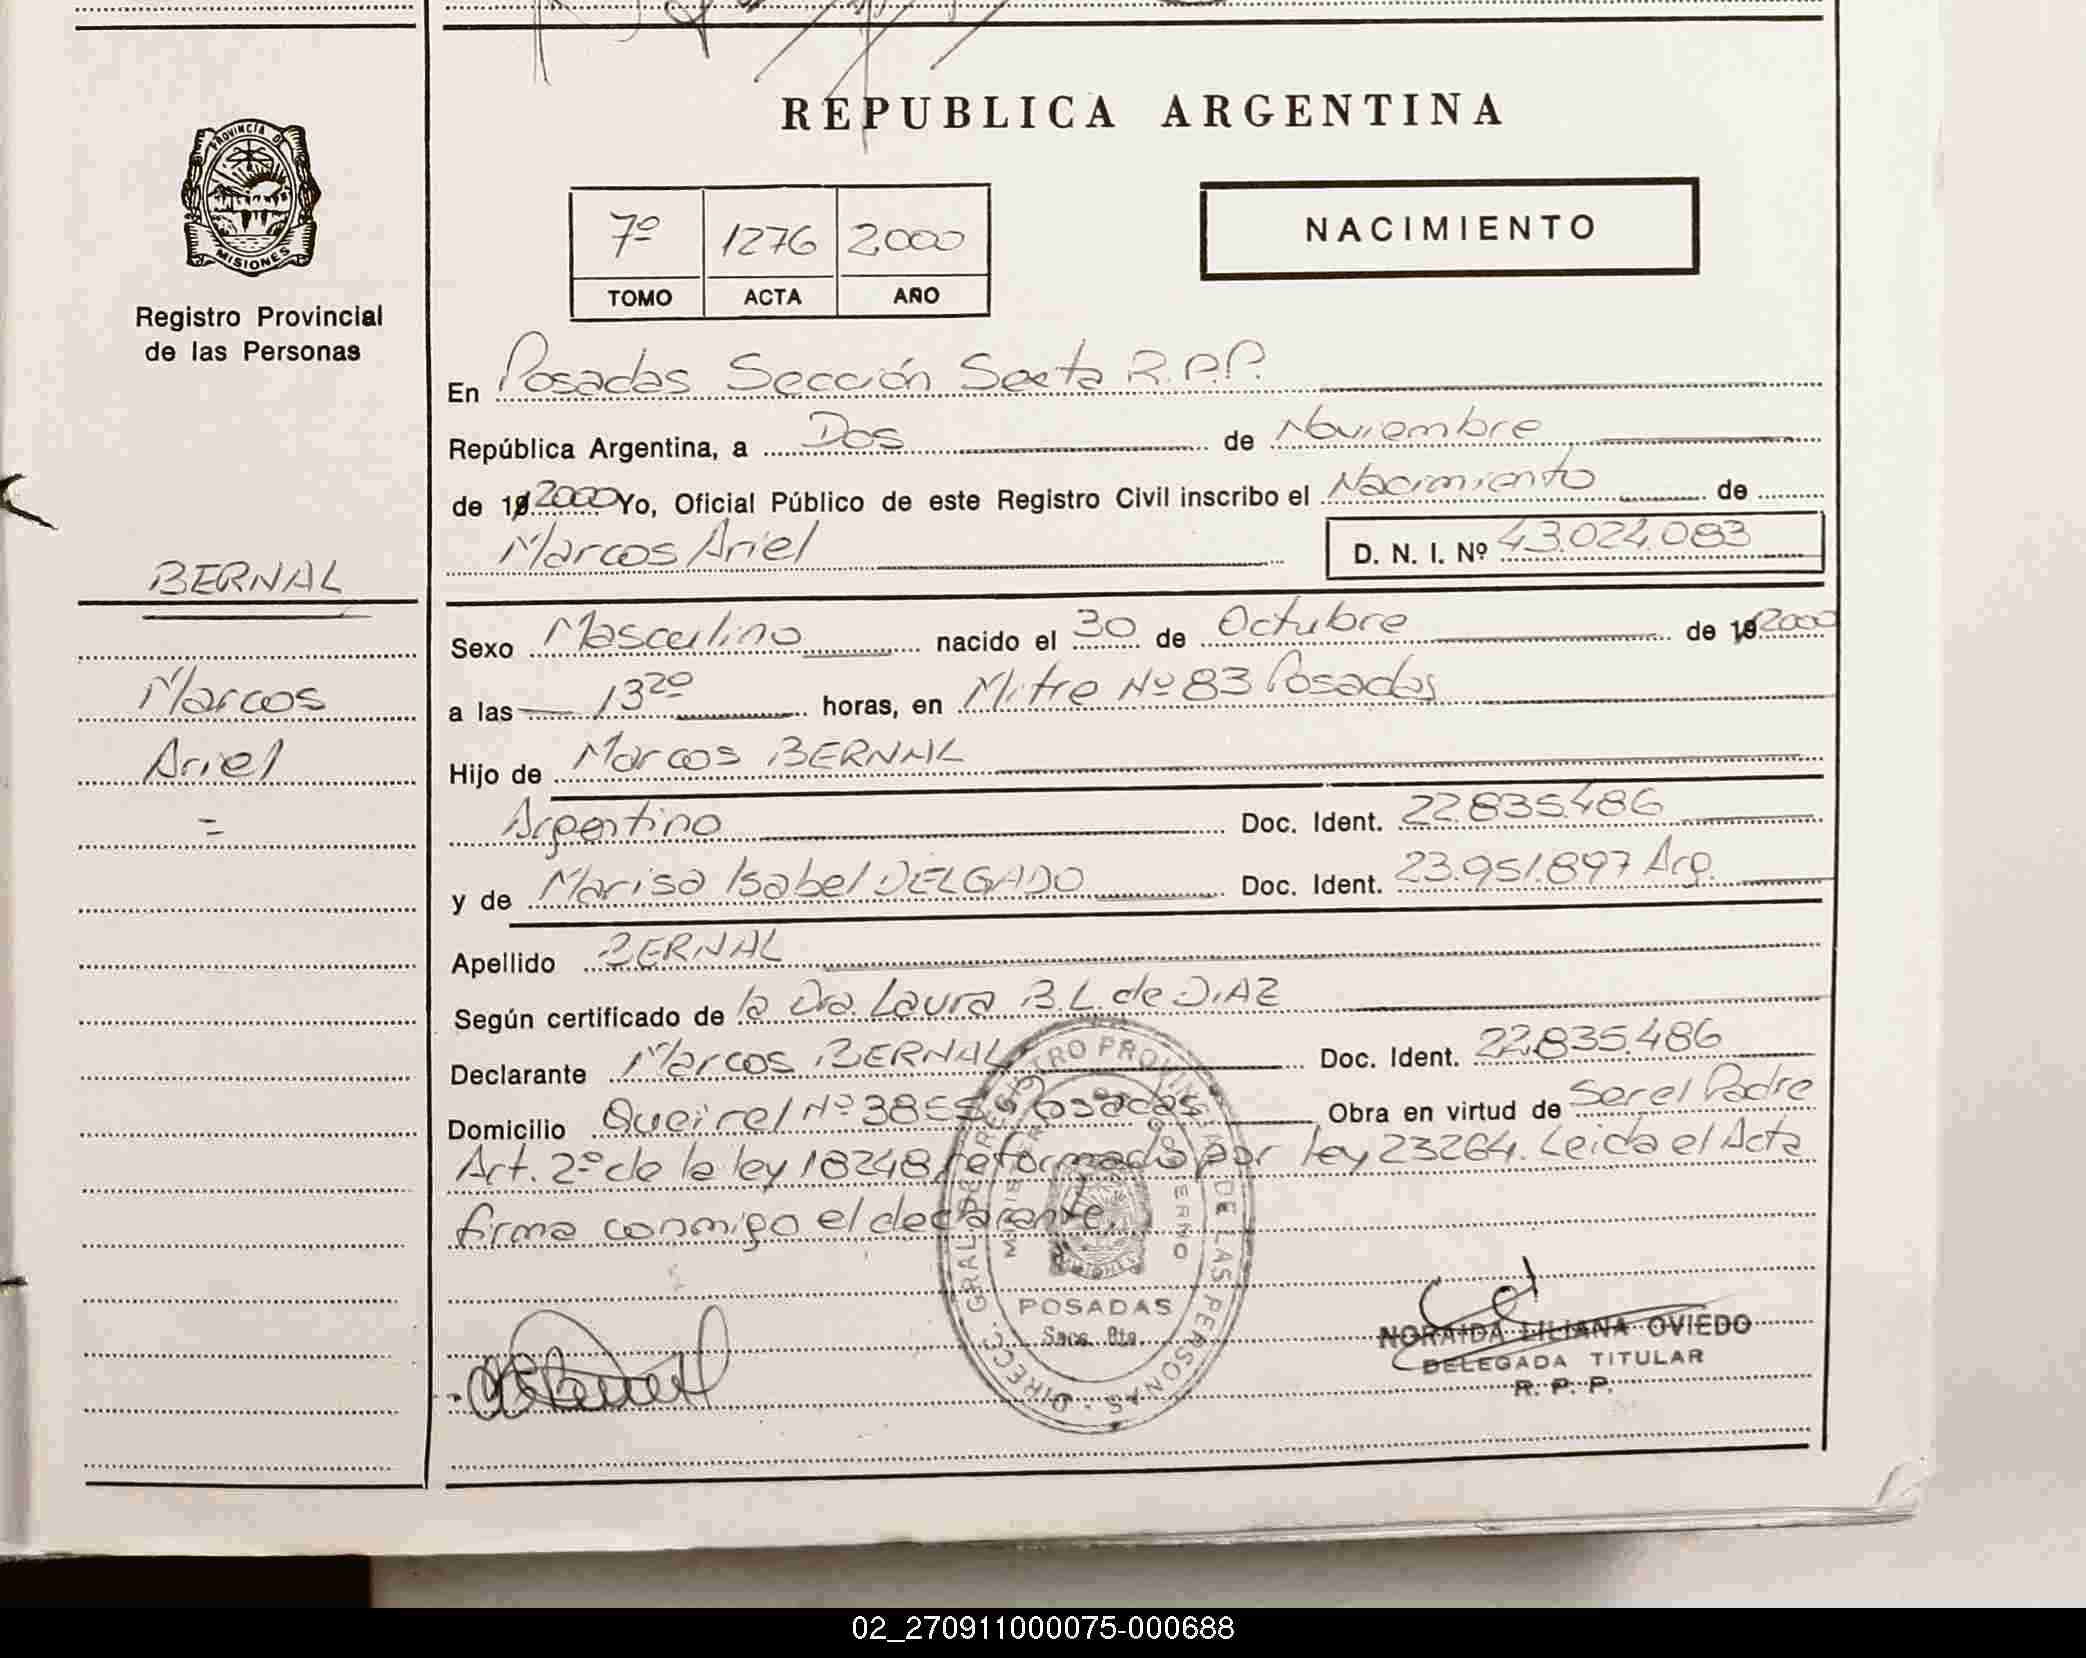 REPUBLICA ARGENTINA
PROVINCIA DE
MISIONES
Registro Provincial
de las Personas
7º 1276 2.000
TOMO ACTA AÑO
NACIMIENTO
En Posadas Sección Sexta R.P.P.
República Argentina, a Dos de Noviembre
de 19 2000 Yo, Oficial Público de este Registro Civil inscribo el Nacimiento de
Marcos Ariel D. N. I. Nº 43.024.083
BERNAL
Marcos
Ariel
=
Sexo Masculino nacido el 30 de Octubre de 19 2000
a las 13 20 horas, en Mitre Nº 83 Posadas
Hijo de Marcos BERNAL
Argentino Doc. Ident. 22.835.486
y de Marisa Isabel DELGADO Doc. Ident. 23.951.897 Arg.
Apellido BERNAL
Según certificado de la Dra. Laura B. L. de DIAZ
Declarante Marcos BERNAL Doc. Ident. 22.835.486
Domicilio Queirel Nº Posadas Obra en virtud de Ser el Padre
Art. 2º de la ley 18248 reformado por ley 23264. Leida el Acta
firma conmigo el declarante.
DIRECC. GRAL. DE REGISTRO PROVINCIAL DE LAS PERSONAS
POSADAS
NORAIDA LILIANA OVIEDO
DELEGADA TITULAR
R. P. P.
02_270911000075-000688